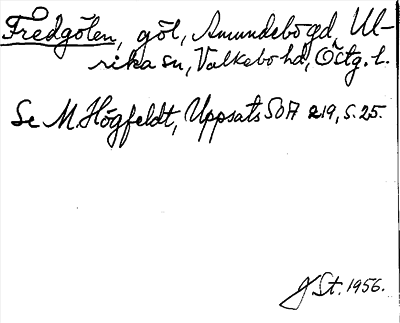 Fredgölen, göl, Amundebo gd, Ul-
rika sn, Valkebo hd, Östg. l.
Se M. Högfeldt, Uppsats SOA 219, s. 25.
St. 1956.